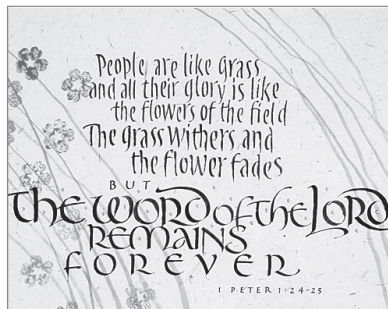 People are like Grass
and all their glory is like
the flowers of the field
The grass withers and
the flower fades
BUT
The WORD of the LORD
REMAINS
FOREVER
1 PETER 1:24-25